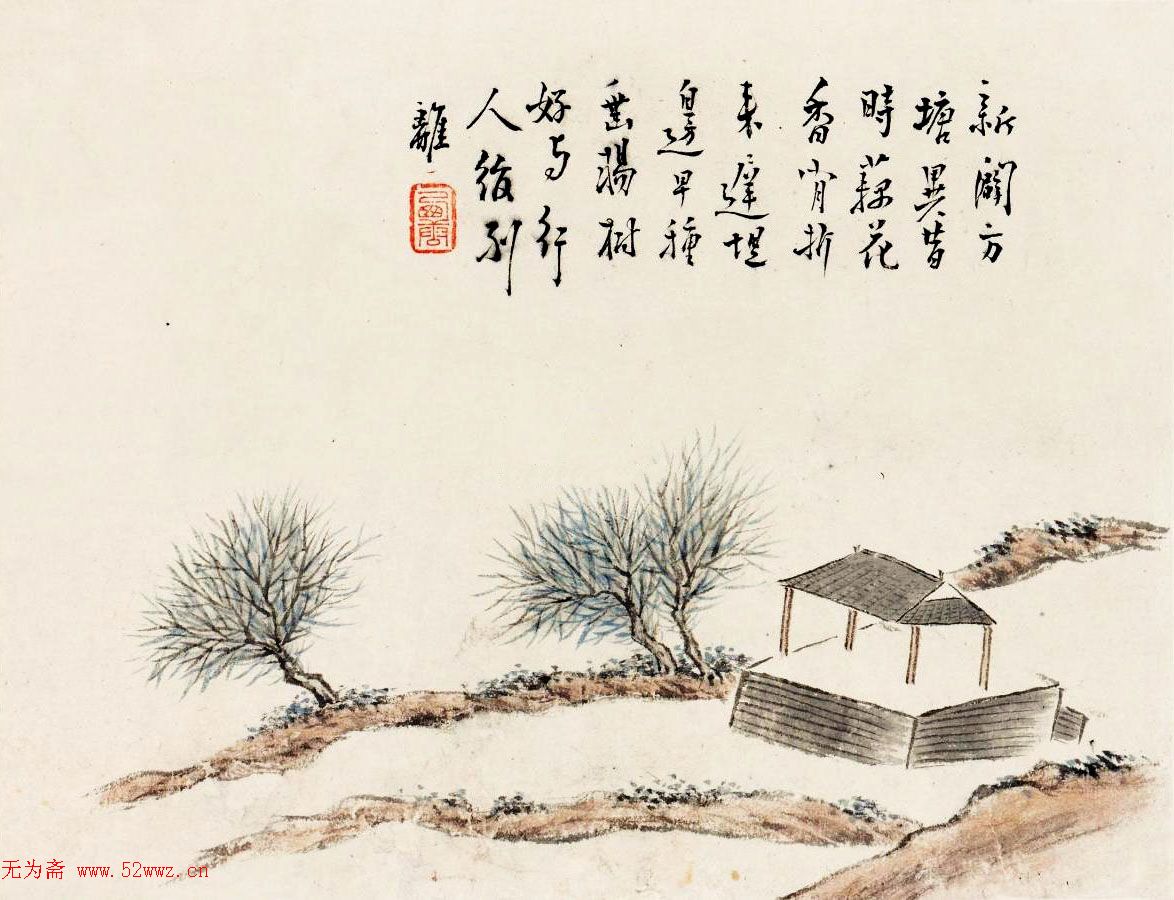 新闢方
塘異昔
時藕花
香折
來遲堤
邊早種
垂楊樹
好与行
人後別
離
无为斋 www.52wwz.cn